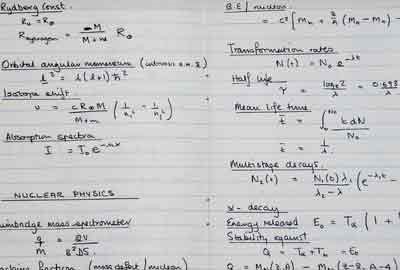 Rydberg Const.
R∞ = R∞
R_Hydrogen = ∞M / (M + m) R∞
Orbital angular momentum
l² = l(l+1)ħ²
Isotope shift.
υ = cR∞M / (M+m) (1/n₁² − 1/n₂²)
Absorption spectra
I = I₀e
NUCLEAR PHYSICS
Bainbridge mass spectrometer
q/M = 2V / B²DS
fraction (mass defect / nucleon)
B.E/ nucleon
= c² [Mn + Z/A (MH − Mn) −
Transformation rates
N(t) = N₀ e^-λt
Half life
τ = loge2 / λ = 0.693 / λ
Mean life time
t̄ = ∫₀^N₀ t dN / N₀
t̄ = 1/λ
Multistage decays.
N₂(t) = N₁(0) λ₁ / (λ₂ − λ) (e^-λ₁t −
α - decay
Energy released E₀ = Tα (1 +
Stability against
Q = Tα + Tb = E₀
Q = M(Z,A) − M(Z-2, A-4)